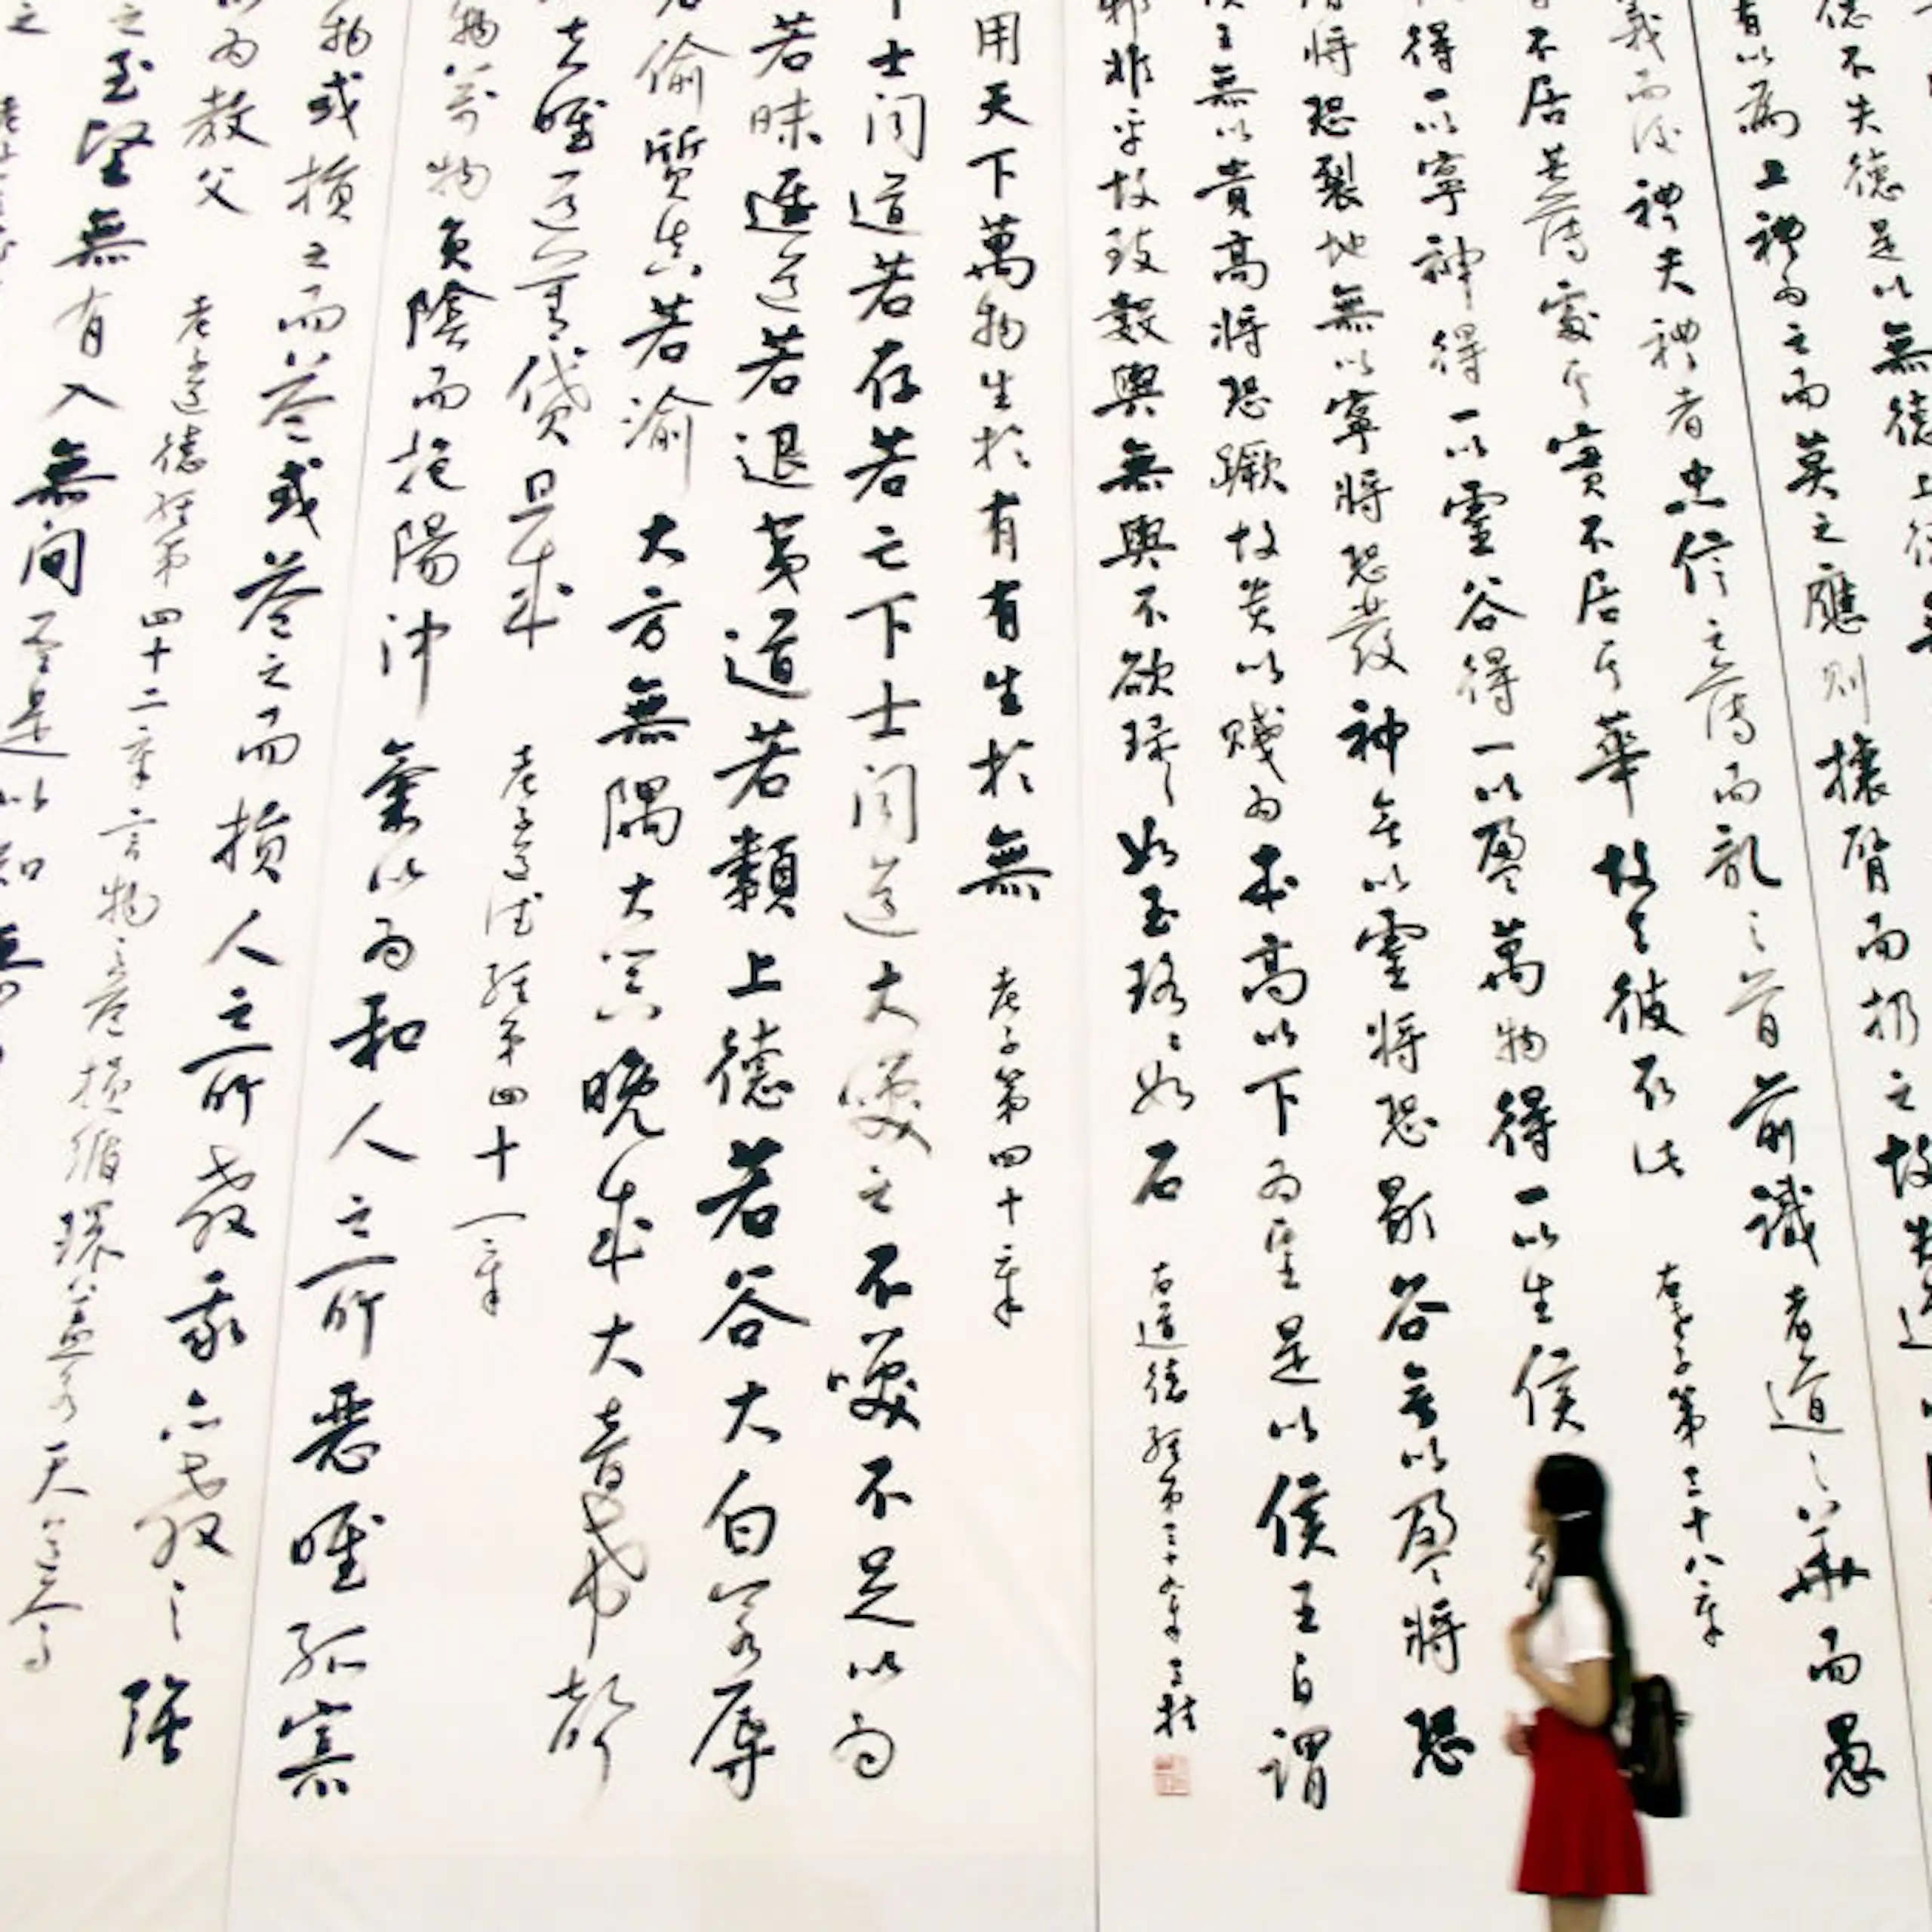 德不失德是以無德上德
有以為上禮為之而莫之應則攘臂而扔之故
義而後禮夫禮者忠信之薄而亂之首前識者道之華而愚
不居其薄處其實不居其華故去彼取此 右老子第三十八章
得一以寧神得一以靈谷得一以盈萬物得一以生侯
將恐裂地無以寧將恐發神無以靈將恐歇谷無以盈將恐
王無以貴高將恐蹶故貴以賤為本高以下為是以侯王自謂
邪非乎故致數輿無輿不欲琭琭如玉珞珞如石 右道德經第三十九章
用天下萬物生於有有生於無 老子第四十章
士聞道若存若亡下士聞道大咲之不咲不足以為
若昧進道若退夷道若纇上德若谷大白若辱
若偷質真若渝大方無隅大器晚成大音希聲
夫唯道善貸且成 老子道德經第四十一章
物萬物負陰而抱陽沖氣以為和人之所惡唯孤寡
物或損之而益或益之而損人之所教我亦教之強
為教父 老子道德經第四十二章言物之益損循環
之至堅無有入無間吾是以知無